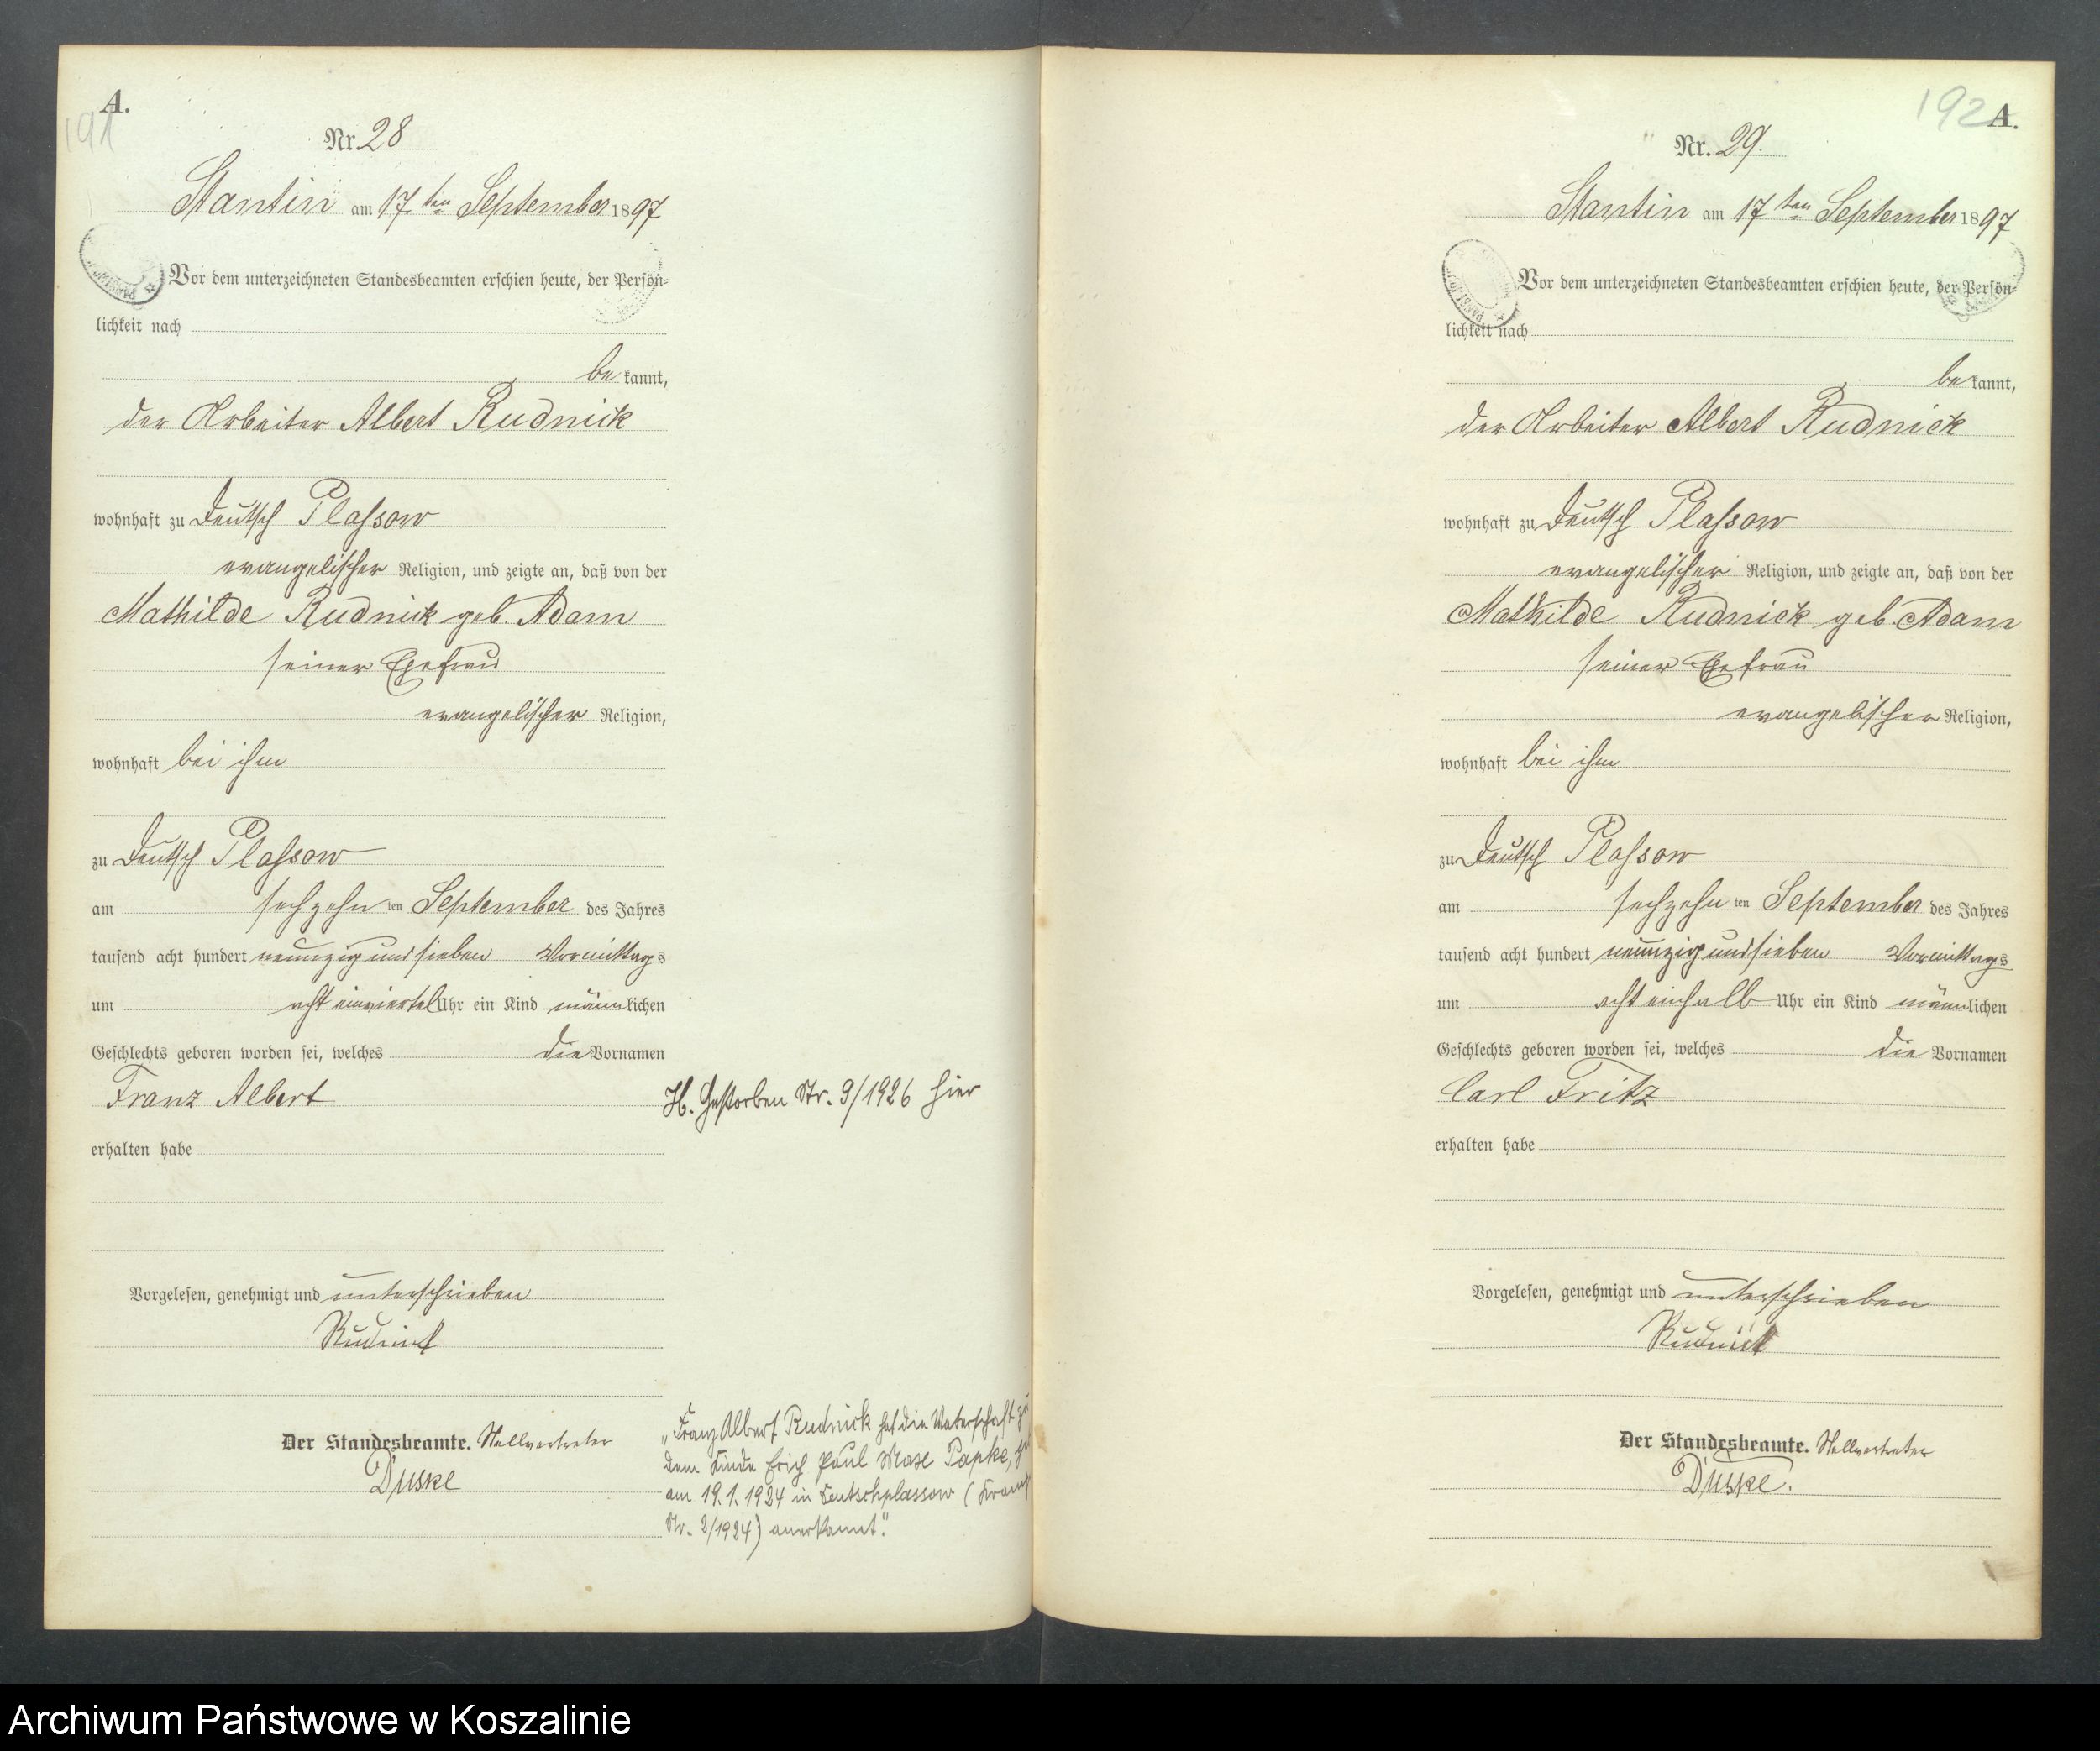 A.
191
Nr. 28
Stantin am 17ten September 1897
Vor dem unterzeichneten Standesbeamten erschien heute, der Persön-
lichkeit nach
be kannt,
der Arbeiter Albert Rudnick
wohnhaft zu Deutsch Plassow
evangelischer Religion, und zeigte an, daß von der
Mathilde Rudnick geb. Adam
seiner Ehefrau
evangelischer Religion,
wohnhaft bei ihm
zu Deutsch Plassow
am sechzehn ten September des Jahres
tausend acht hundert neunzig und sieben Vormittags
um acht einviertel Uhr ein Kind männlichen
Geschlechts geboren worden sei, welches die Vornamen
Franz Albert
H. Gestorben Nr. 9/1926 hier
erhalten habe
Vorgelesen, genehmigt und unterschrieben
Rudnick
Der Standesbeamte. Stellvertreter
Duske
„Franz Albert Rudnick hat die Vaterschaft zu
dem Kinde Erich Paul Max Papke,
am 19.1.1924 in Deutschplassow (
Nr. 2/1924) anerkannt."
192
A.
Nr. 29.
Stantin am 17ten September 1897
Vor dem unterzeichneten Standesbeamten erschien heute, der Persön-
lichkeit nach
be kannt,
der Arbeiter Albert Rudnick
wohnhaft zu Deutsch Plassow
evangelischer Religion, und zeigte an, daß von der
Mathilde Rudnick geb. Adam
seiner Ehefrau
evangelischer Religion,
wohnhaft bei ihm
zu Deutsch Plassow
am sechzehn ten September des Jahres
tausend acht hundert neunzig und sieben Vormittags
um acht einhalb Uhr ein Kind männlichen
Geschlechts geboren worden sei, welches die Vornamen
Carl Fritz
erhalten habe
Vorgelesen, genehmigt und unterschrieben
Rudnick
Der Standesbeamte. Stellvertreter
Duske.
Archiwum Państwowe w Koszalinie